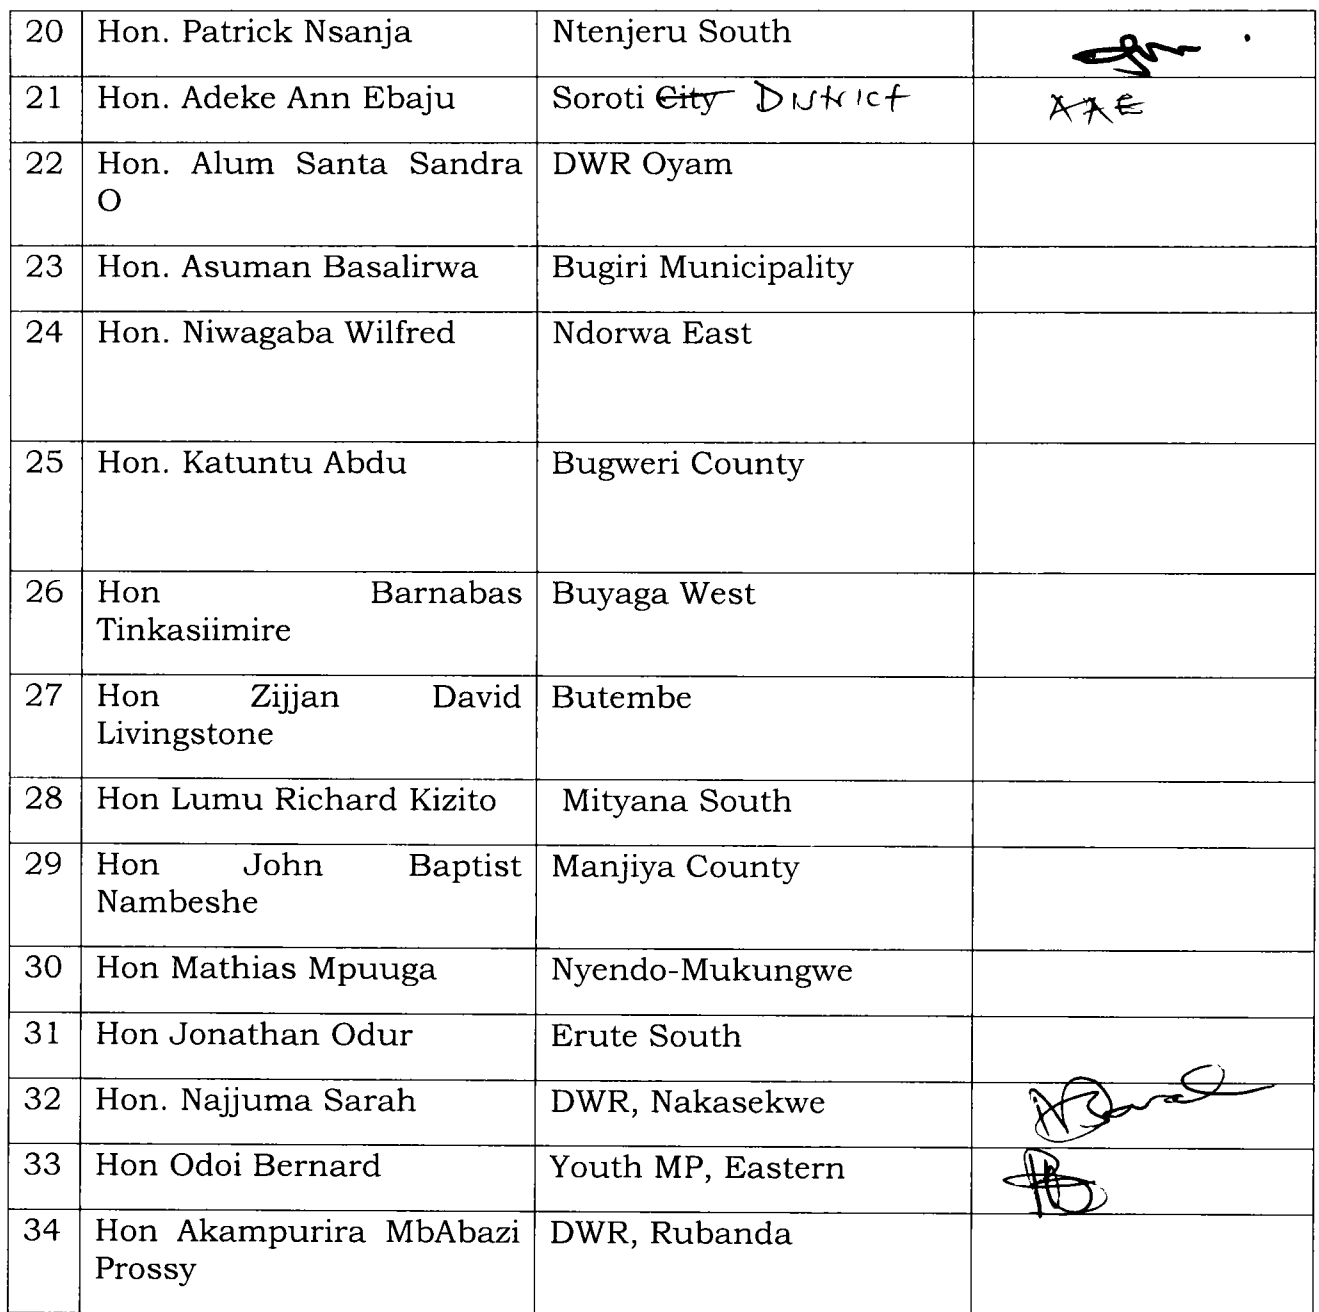 20 Hon. Patrick Nsanja Ntenjeru South
21 Hon. Adeke Ann Ebaju Soroti City District AAE
22 Hon. Alum Santa Sandra DWR Oyam
O
23 Hon. Asuman Basalirwa Bugiri Municipality
24 Hon. Niwagaba Wilfred Ndorwa East
25 Hon. Katuntu Abdu Bugweri County
26 Hon Barnabas Buyaga West
Tinkasiimire
27 Hon Zijjan David Butembe
Livingstone
28 Hon Lumu Richard Kizito Mityana South
29 Hon John Baptist Manjiya County
Nambeshe
30 Hon Mathias Mpuuga Nyendo-Mukungwe
31 Hon Jonathan Odur Erute South
32 Hon. Najjuma Sarah DWR, Nakasekwe
33 Hon Odoi Bernard Youth MP, Eastern
34 Hon Akampurira MbAbazi DWR, Rubanda
Prossy